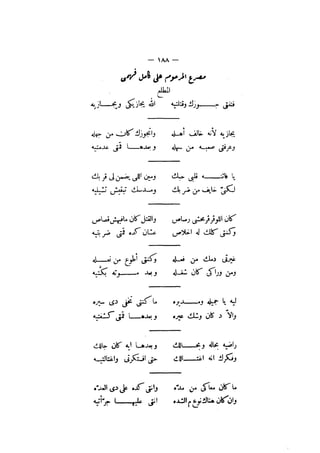 — ١٨٨ —
مصرع المرحوم على كامل فهمى
المطلع
فتنى جـــورك وقتانيه الله يجازيكى ويحـــازيه
يجازيه لأنه خالف أهـله واتجوزك كان من جهله
وعرفتى صعبـه من سهله وبعدهـــا قتى عدمتيه
يا قلبى حبك ومين اللى يضمن لى قربك
خايف من ضربك ومسدسك تبقيش تشيليه
كان رصاص والقتل كان مافيهش قصاص
وكنتى كلك له اخلاص عشان كده قتى ضربتيه
دمك من فصله وكنتى أطوع من نعـله
ومن وراكى كان شغله وبعد مـــوته بكتيه
ليه يا جميله ومـــديره ما كنتى تخفى دى سيره
والا د كان وشك غيره وبعدهـــا قتى كشفتيه
راضيه بحاله وبحـــالك وبعدهـا ايه كان جالك
وفكرك انه اغتـــالك حتى افتكرتى واغتالتيـه
ما كان معاكى من مده وانتى كده على دى العده
وان كان هناك نوع م الشده انتى عليهـــا